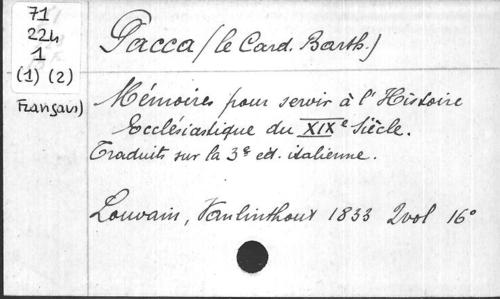 71
224
1
(1) (2)
Français)
Pacca (le Card. Barth.)
Mémoires pour servir à l'Histoire
Ecclésiastique du XIXe Siècle.
Traduits sur la 3e ed. italienne.
Louvain, Vanlinthout 1833 2vol 16°